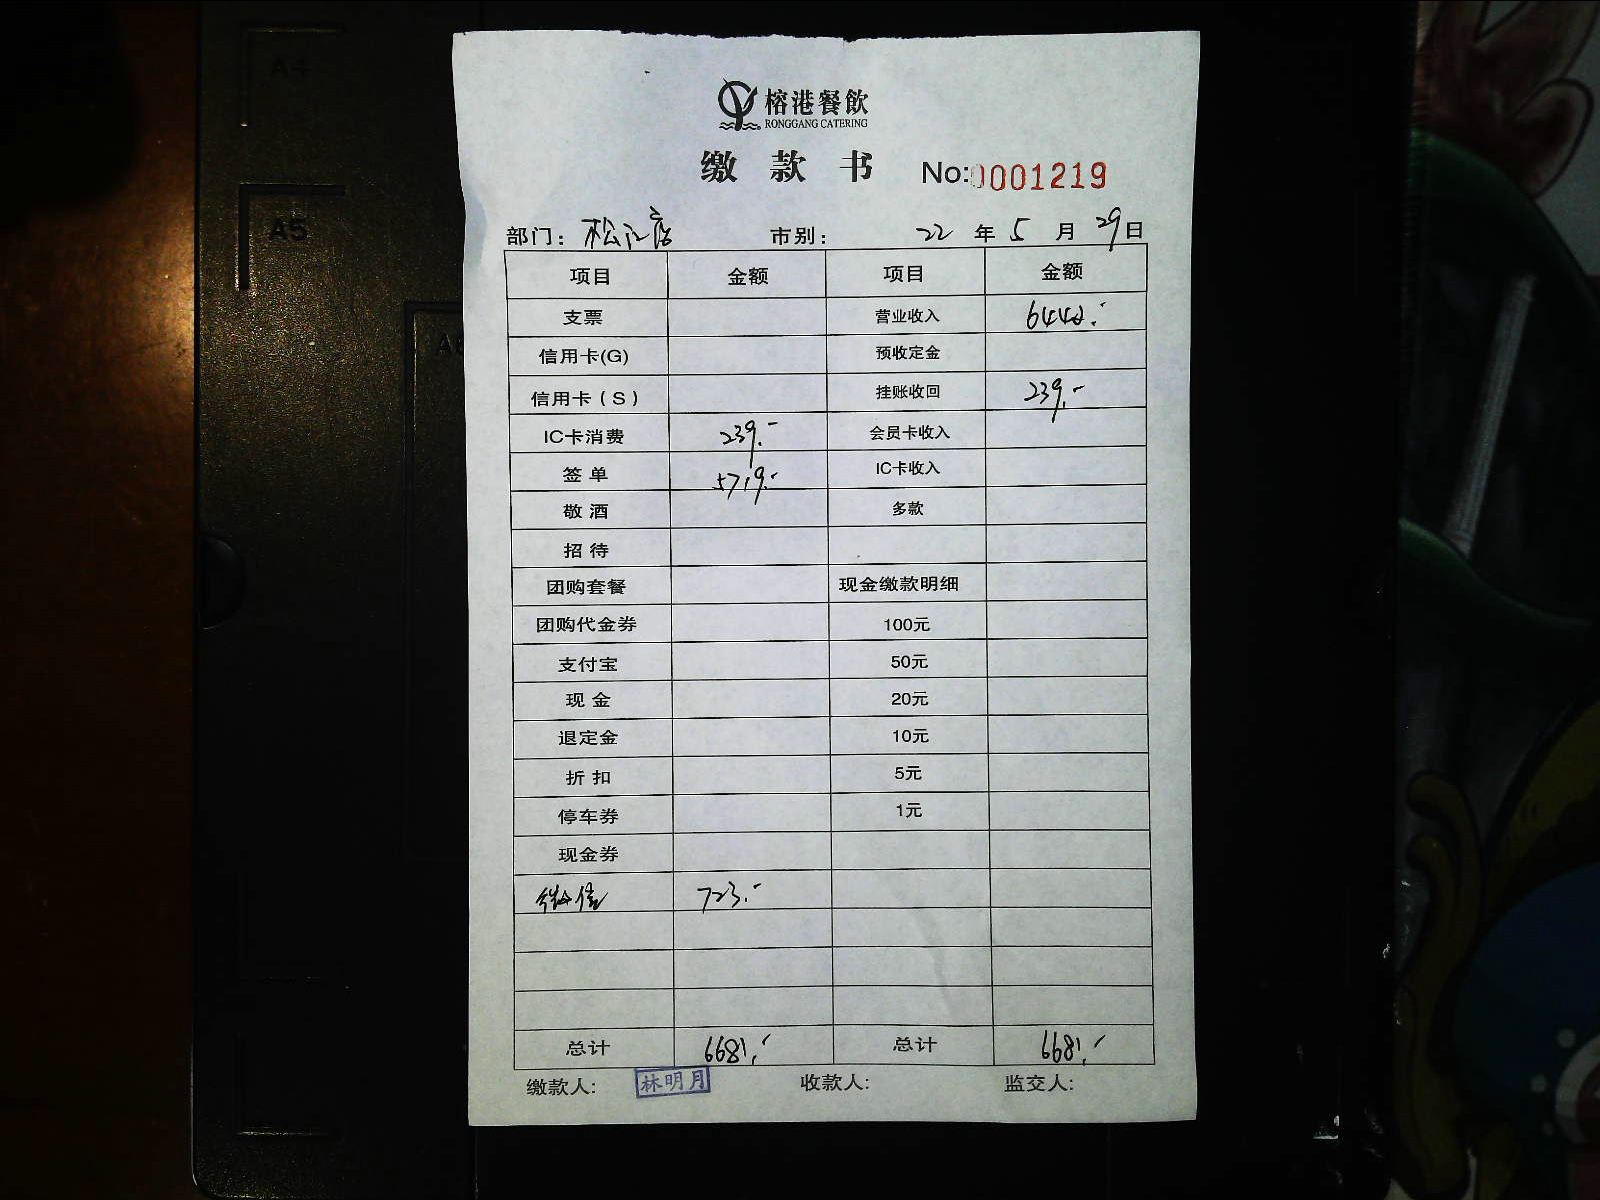 A4
A5
榕港餐飲
RONGGANG CATERING
缴款书 No:0001219
部门：松江店 市别： 22年5月29日
项目 金额 项目 金额
支票 营业收入 6442.-
信用卡(G) 预收定金
信用卡（S） 挂账收回 239.-
IC卡消费 239.- 会员卡收入
签单 5719.- IC卡收入
敬酒 多款
招待
团购套餐 现金缴款明细
团购代金券 100元
支付宝 50元
现金 20元
退定金 10元
折扣 5元
停车券 1元
现金券
微信 723.-
总计 6681.- 总计 6681.-
缴款人: 林明月 收款人: 监交人: